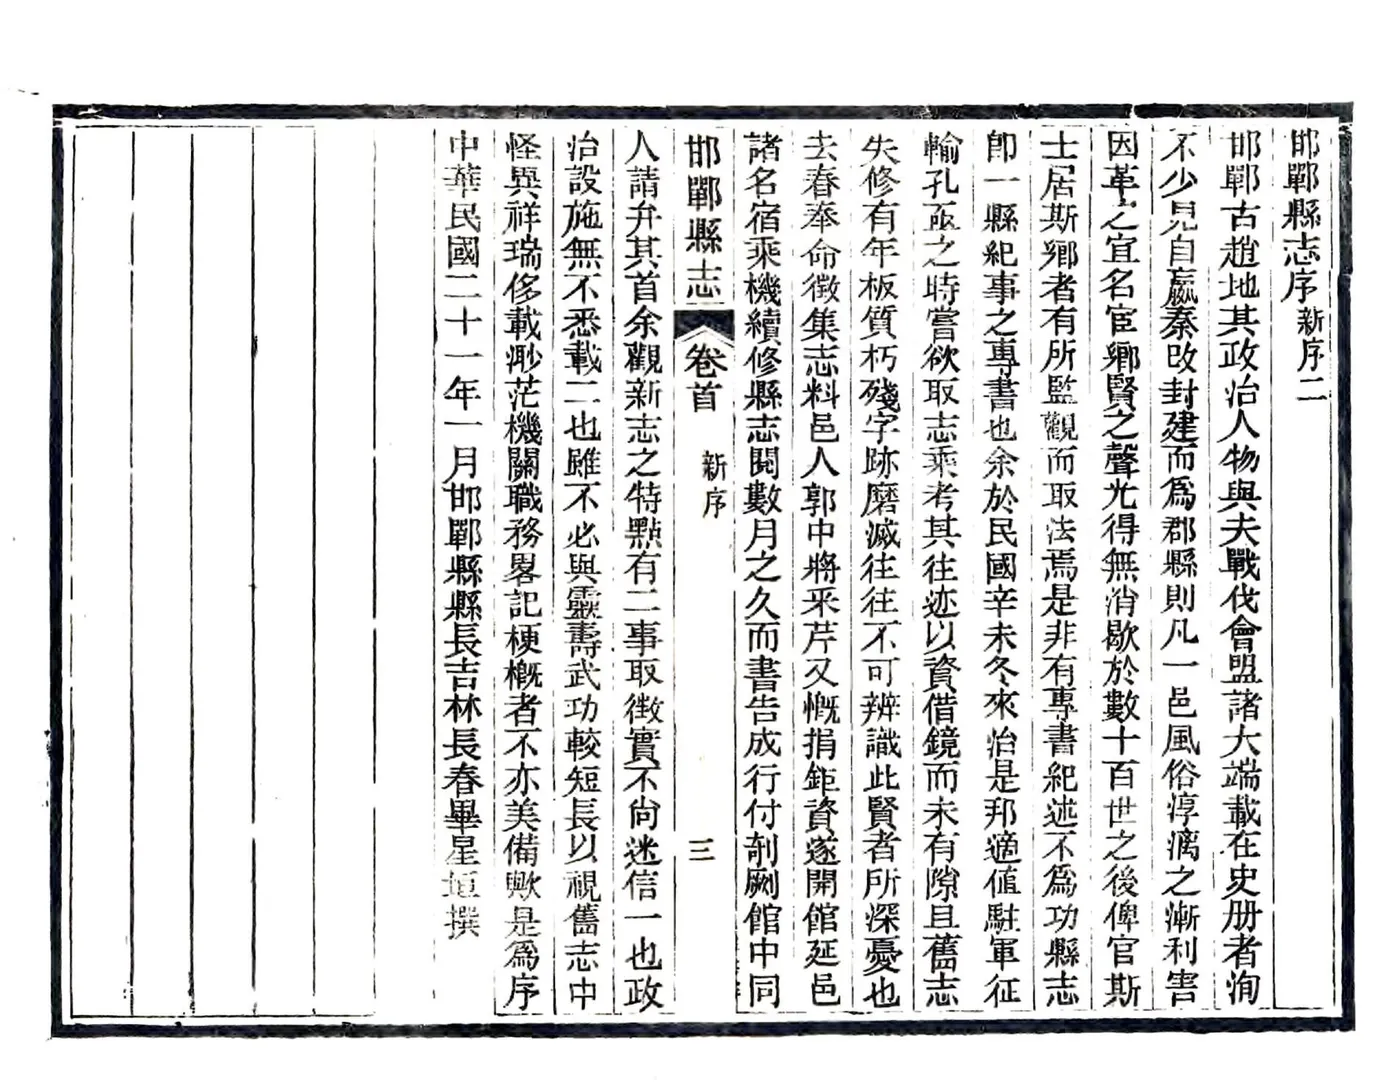 邯鄲縣志序新序二
邯鄲古趙地其政治人物與夫戰伐會盟諸大端載在史册者洵
不少見自嬴秦改封建而爲郡縣則凡一邑風俗淳漓之漸利害
因革之宜名宦鄉賢之聲光得無消歇於數十百世之後俾官斯
士居斯鄉者有所監觀而取法焉是非有專書紀述不爲功縣志
卽一縣紀事之專書也余於民國辛未冬來治是邦適値駐軍征
輸孔亟之時嘗欲取志乘考其往迹以資借鏡而未有隙且舊志
失修有年板質朽殘字跡磨滅往往不可辨識此賢者所深憂也
去春奉命徵集志料邑人郭中將采芹又慨捐鉅資遂開館延邑
諸名宿乘機續修縣志閱數月之久而書告成行付剞劂館中同
邯鄲縣志 卷首 新序 三
人請弁其首余觀新志之特點有二事取徵實不尚迷信一也政
治設施無不悉載二也雖不必與靈壽武功較短長以視舊志中
怪異祥瑞侈載渺茫機關職務畧記梗槪者不亦美備歟是爲序
中華民國二十一年一月邯鄲縣縣長吉林長春畢星垣撰